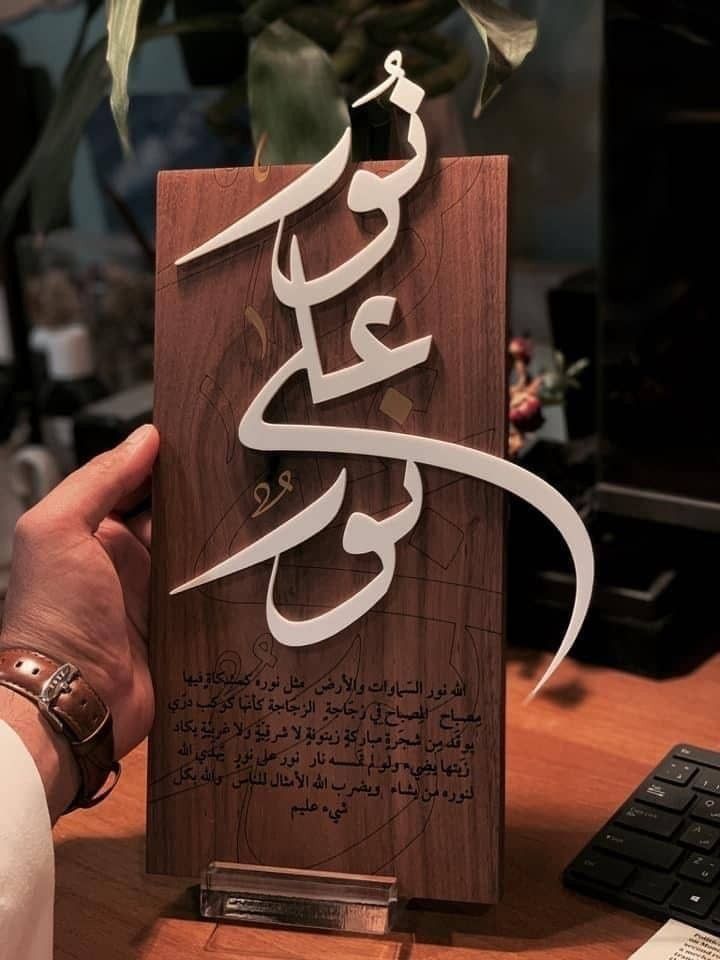 نُورٌ
عَلى
نُورٌ
الله نور السّماوات والأرض مثل نوره كمشكاةٍ فيها
مصباح المصباح في زجاجةٍ الزجاجة كأنها كوكب دري
يوقد من شجرةٍ مباركةٍ زيتونةٍ لا شرقيّةٍ ولا غربيّةٍ يكاد
زيتها يضيء ولو لم تمسسه نار نور على نورٍ يهدي الله
لنوره من يشاء ويضرب الله الأمثال للناس والله بكل
شيء عليم